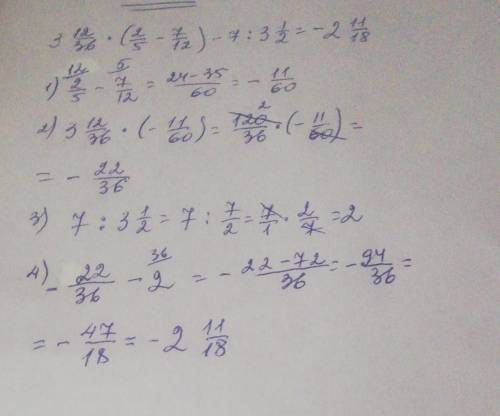 3 12/36 · (2/5 - 7/12) - 7 : 3 1/2 = -2 11/18
1) 12 2/5 - 5 7/12 = 24-35/60 = - 11/60
2) 3 12/36 · (- 11/60) = 120 2/36 · (- 11/60) =
= - 22/36
3) 7 : 3 1/2 = 7 : 7/2 = 7/1 · 2/7 = 2
4) - 22/36 - 36 2 = - 22-72/36 = - 94/36 =
= - 47/18 = -2 11/18